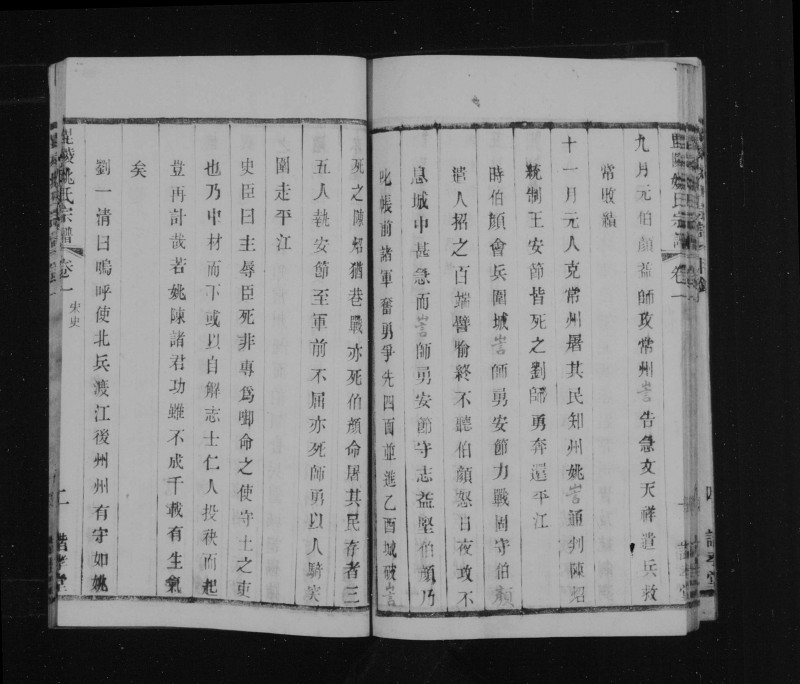 九月元伯顏益師攻常州訔告急文天祥遣兵救
常敗績
十一月元人克常州屠其民知州姚訔通判陳炤
統制王安節皆死之劉師勇奔還平江
時伯顏會兵圍城訔師勇安節力戰固守伯顏
遣人招之百端譬喻終不聽伯顏怒日夜攻不
息城中甚急而訔師勇安節守志益堅伯顏乃
叱帳前諸軍奮勇爭先四面並進乙酉城破訔
死之陳炤猶巷戰亦死伯顏命屠其民存者三
五人執安節至軍前不屈亦死師勇以人騎突
圍走平江
史臣曰主辱臣死非專為啣命之使守土之吏
也乃中材而下或以自解志士仁人投袂而起
豈再計哉若姚陳諸君功雖不成千載有生氣
矣
劉一清曰嗚呼使北兵渡江後州州有守如姚
毘陵姚氏宗譜
卷一
宋史